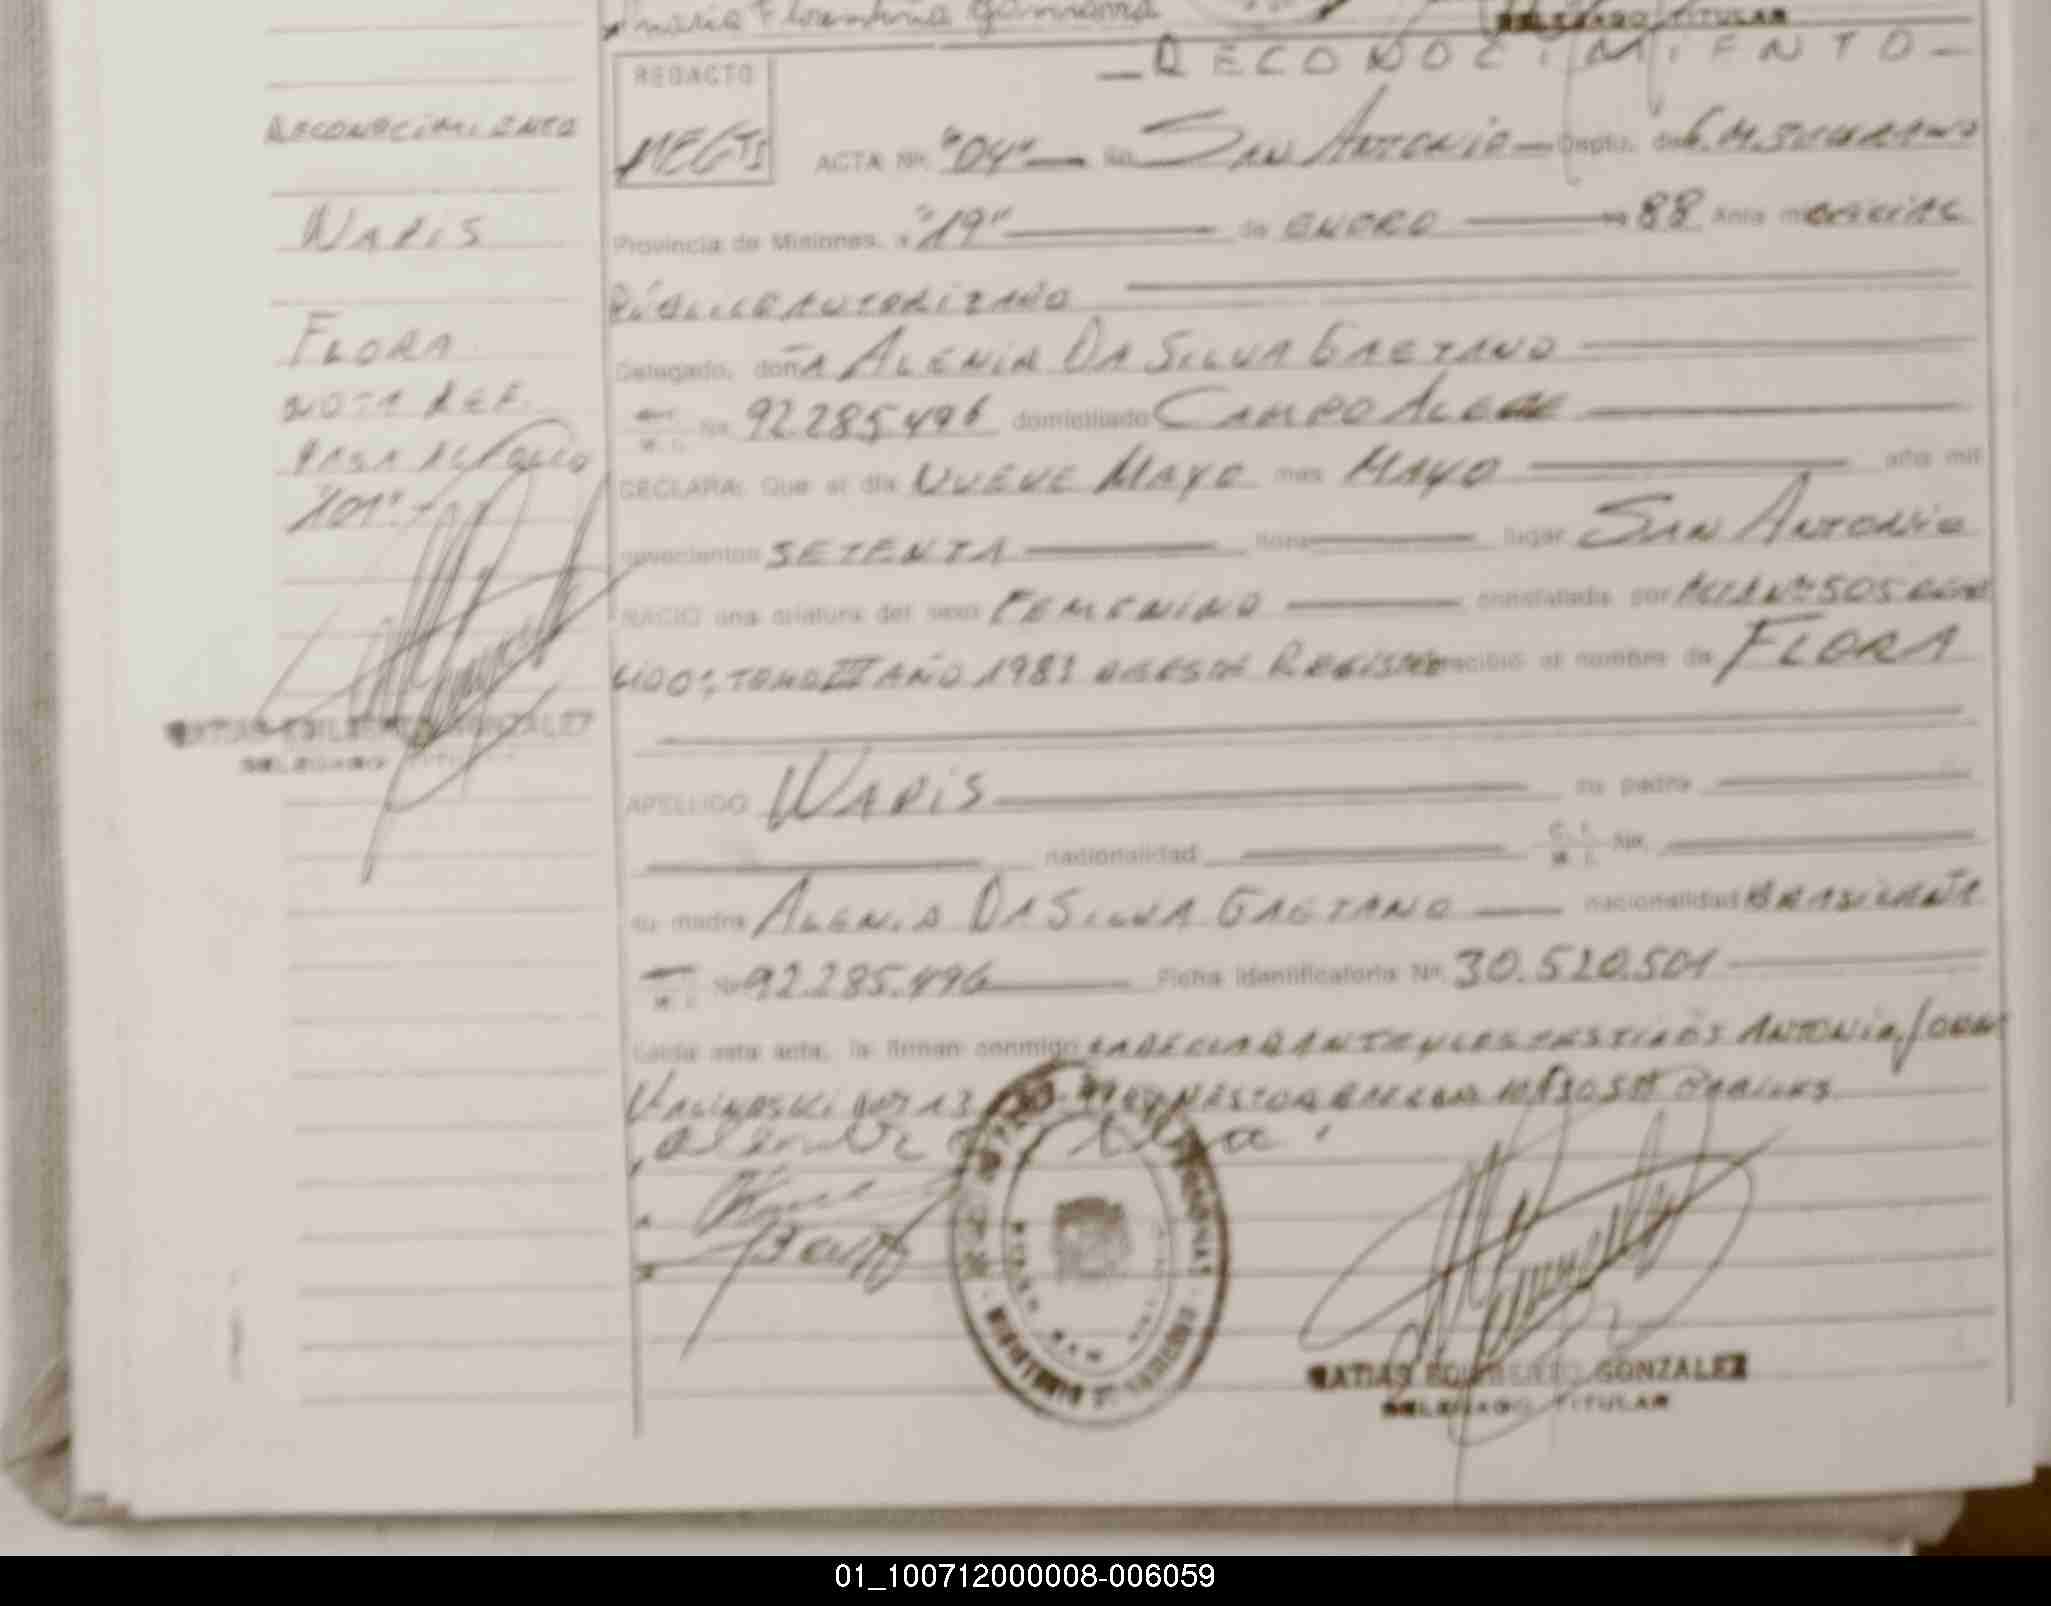 Maria Florentina
DELEGADO TITULAR
— RECONOCIMIENTO —
REDACTO
RECONOCIMIENTO
ACTA Nº. "04" — En SAN ANTONIO — Dpto. de G.M.
WARIS
Provincia de Misiones, a "19" — de ENERO — 88 Ante mi OFICIAL
PÚBLICO AUTORIZADO
FLORA
Delegado, doñA ALENIA DA SILVA GAETANO
NOTA REF.
M. I. Nº 92.285.496 domiciliado CAMPO ALEGRE
PASA AL FOLIO
DECLARA: Que el día NUEVE MAYO mes MAYO — año mil
"101"
novecientos SETENTA — hora — lugar SAN ANTONIO
NACIO una criatura del sexo FEMENINO — constatada por ACTA Nº 505
TOMO III AÑO 1981 DE ESTE REGISTRO recibió el nombre de FLORA
MATIAS EDILBERTO GONZALEZ
DELEGADO TITULAR
APELLIDO WARIS — su padre —
— nacionalidad — C. I. M. I. Nº. —
su madre ALENIA DA SILVA GAETANO — nacionalidad BRASILEÑA
M. I. Nº 92.285.496 — Ficha identificatoria Nº. 30.520.501 —
Leída esta acta, la firman conmigo LA DECLARANTE Y LOS TESTIGOS ANTONIO
NESTOR
MATIAS EDILBERTO GONZALEZ
DELEGADO TITULAR
01_100712000008-006059